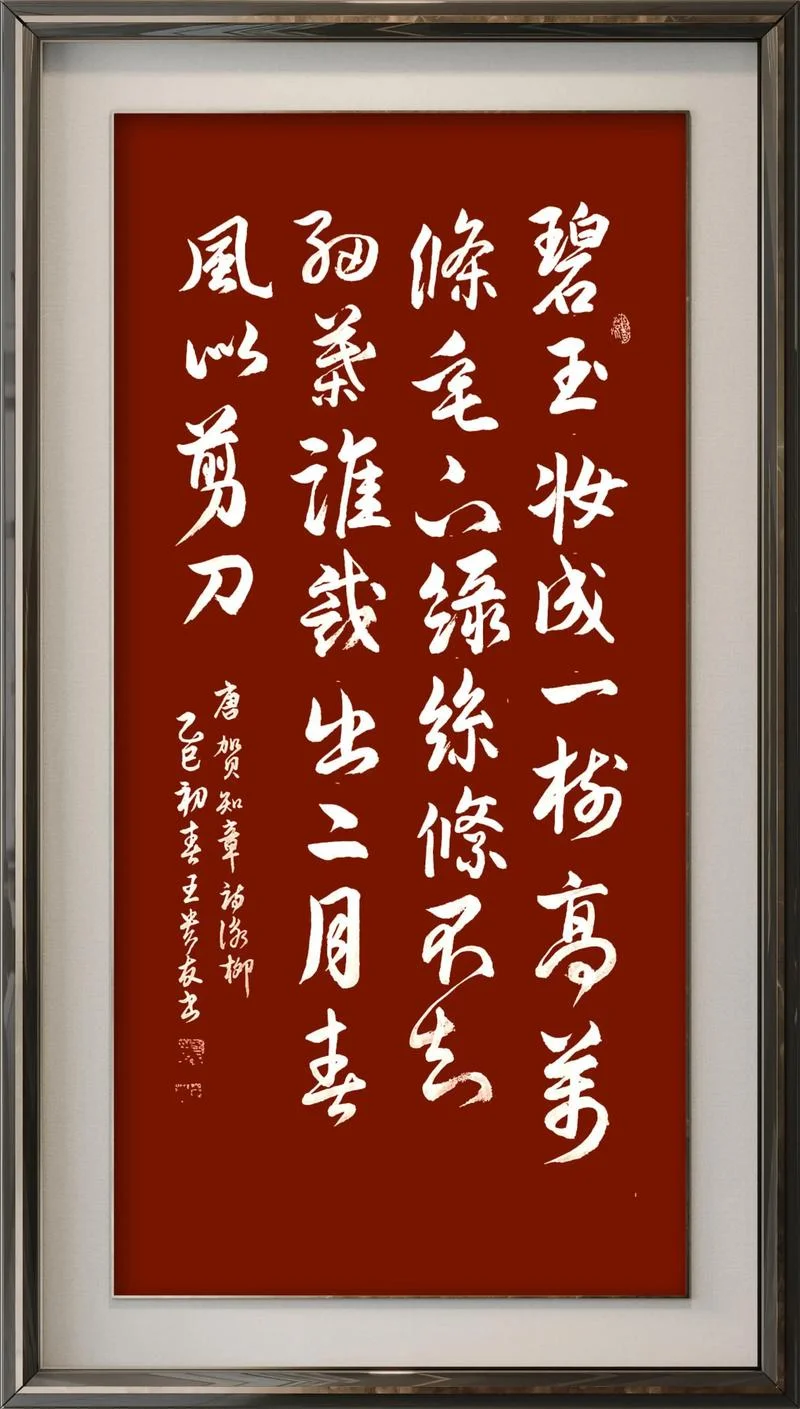 碧玉妆成一树高萬
條垂下綠絲絛不知
細葉誰裁出二月春
風似剪刀
唐賀知章詩詠柳
乙巳初春王貴友書